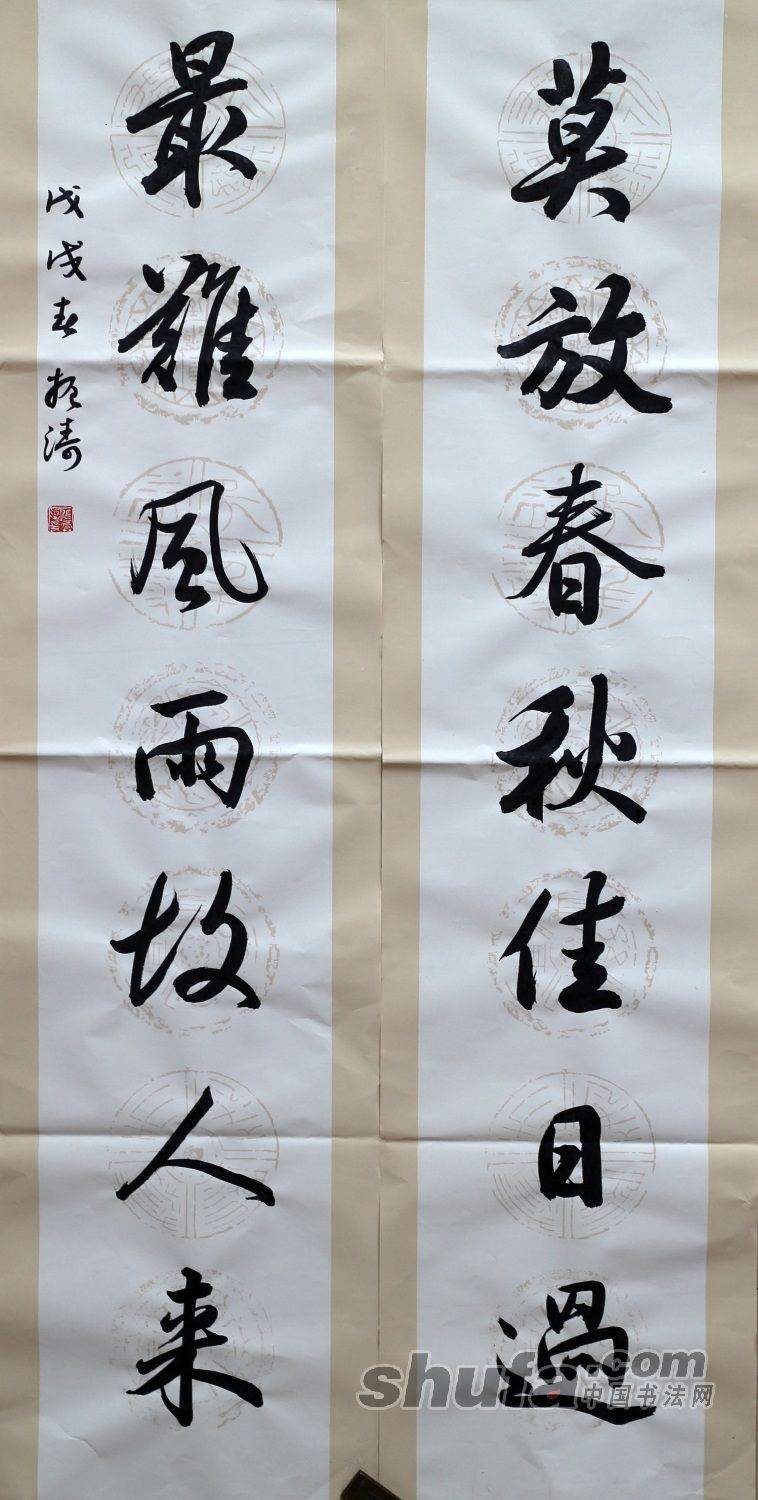 莫放春秋佳日過
最難風雨故人来
戊戌春振濤
shufa.com
中国书法网